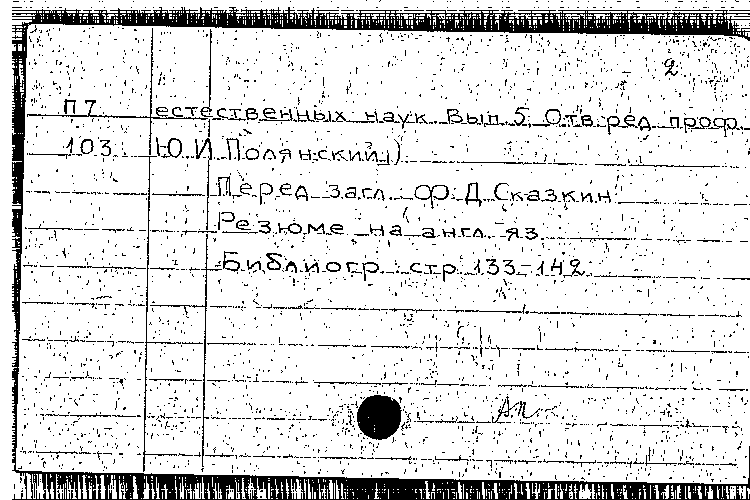 2
П7 естественных наук. Вып. 5. Отв. ред. проф.
103 Ю.И.Полянский.)
Перед загл.: Ф.Д.Сказкин
Резюме на англ. яз.
Библиогр.: стр. 133-142